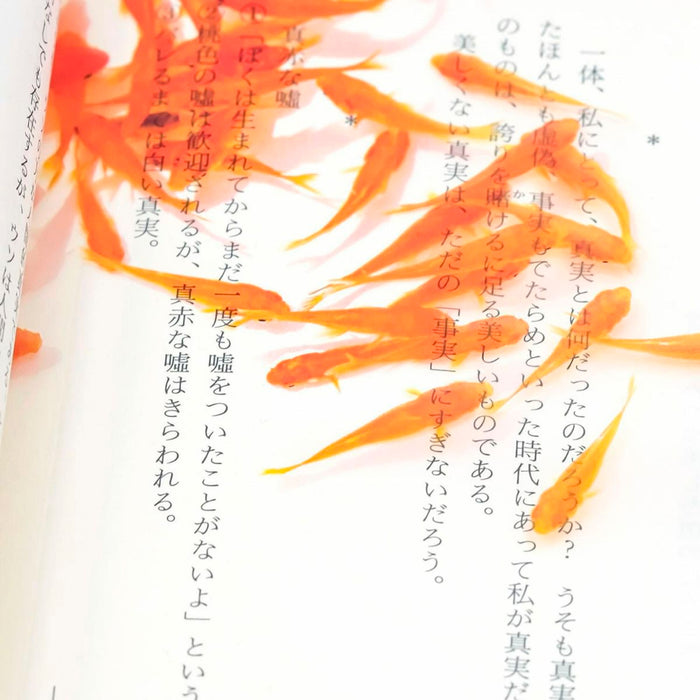 *
一体、私にとって、真実とは何だったのだろうか? うそも真実
たほんとも虚偽、事実もでたらめといった時代にあって私が真実だ
のものは、誇りを賭けるに足る美しいものである。
美しくない真実は、ただの「事実」にすぎないだろう。
*
真赤な嘘
①「ぼくは生まれてからまだ一度も嘘をついたことがないよ」という
②桃色の嘘は歓迎されるが、真赤な嘘はきらわれる。
バレるまでは白い真実。
しても存在するが、ウソは人間